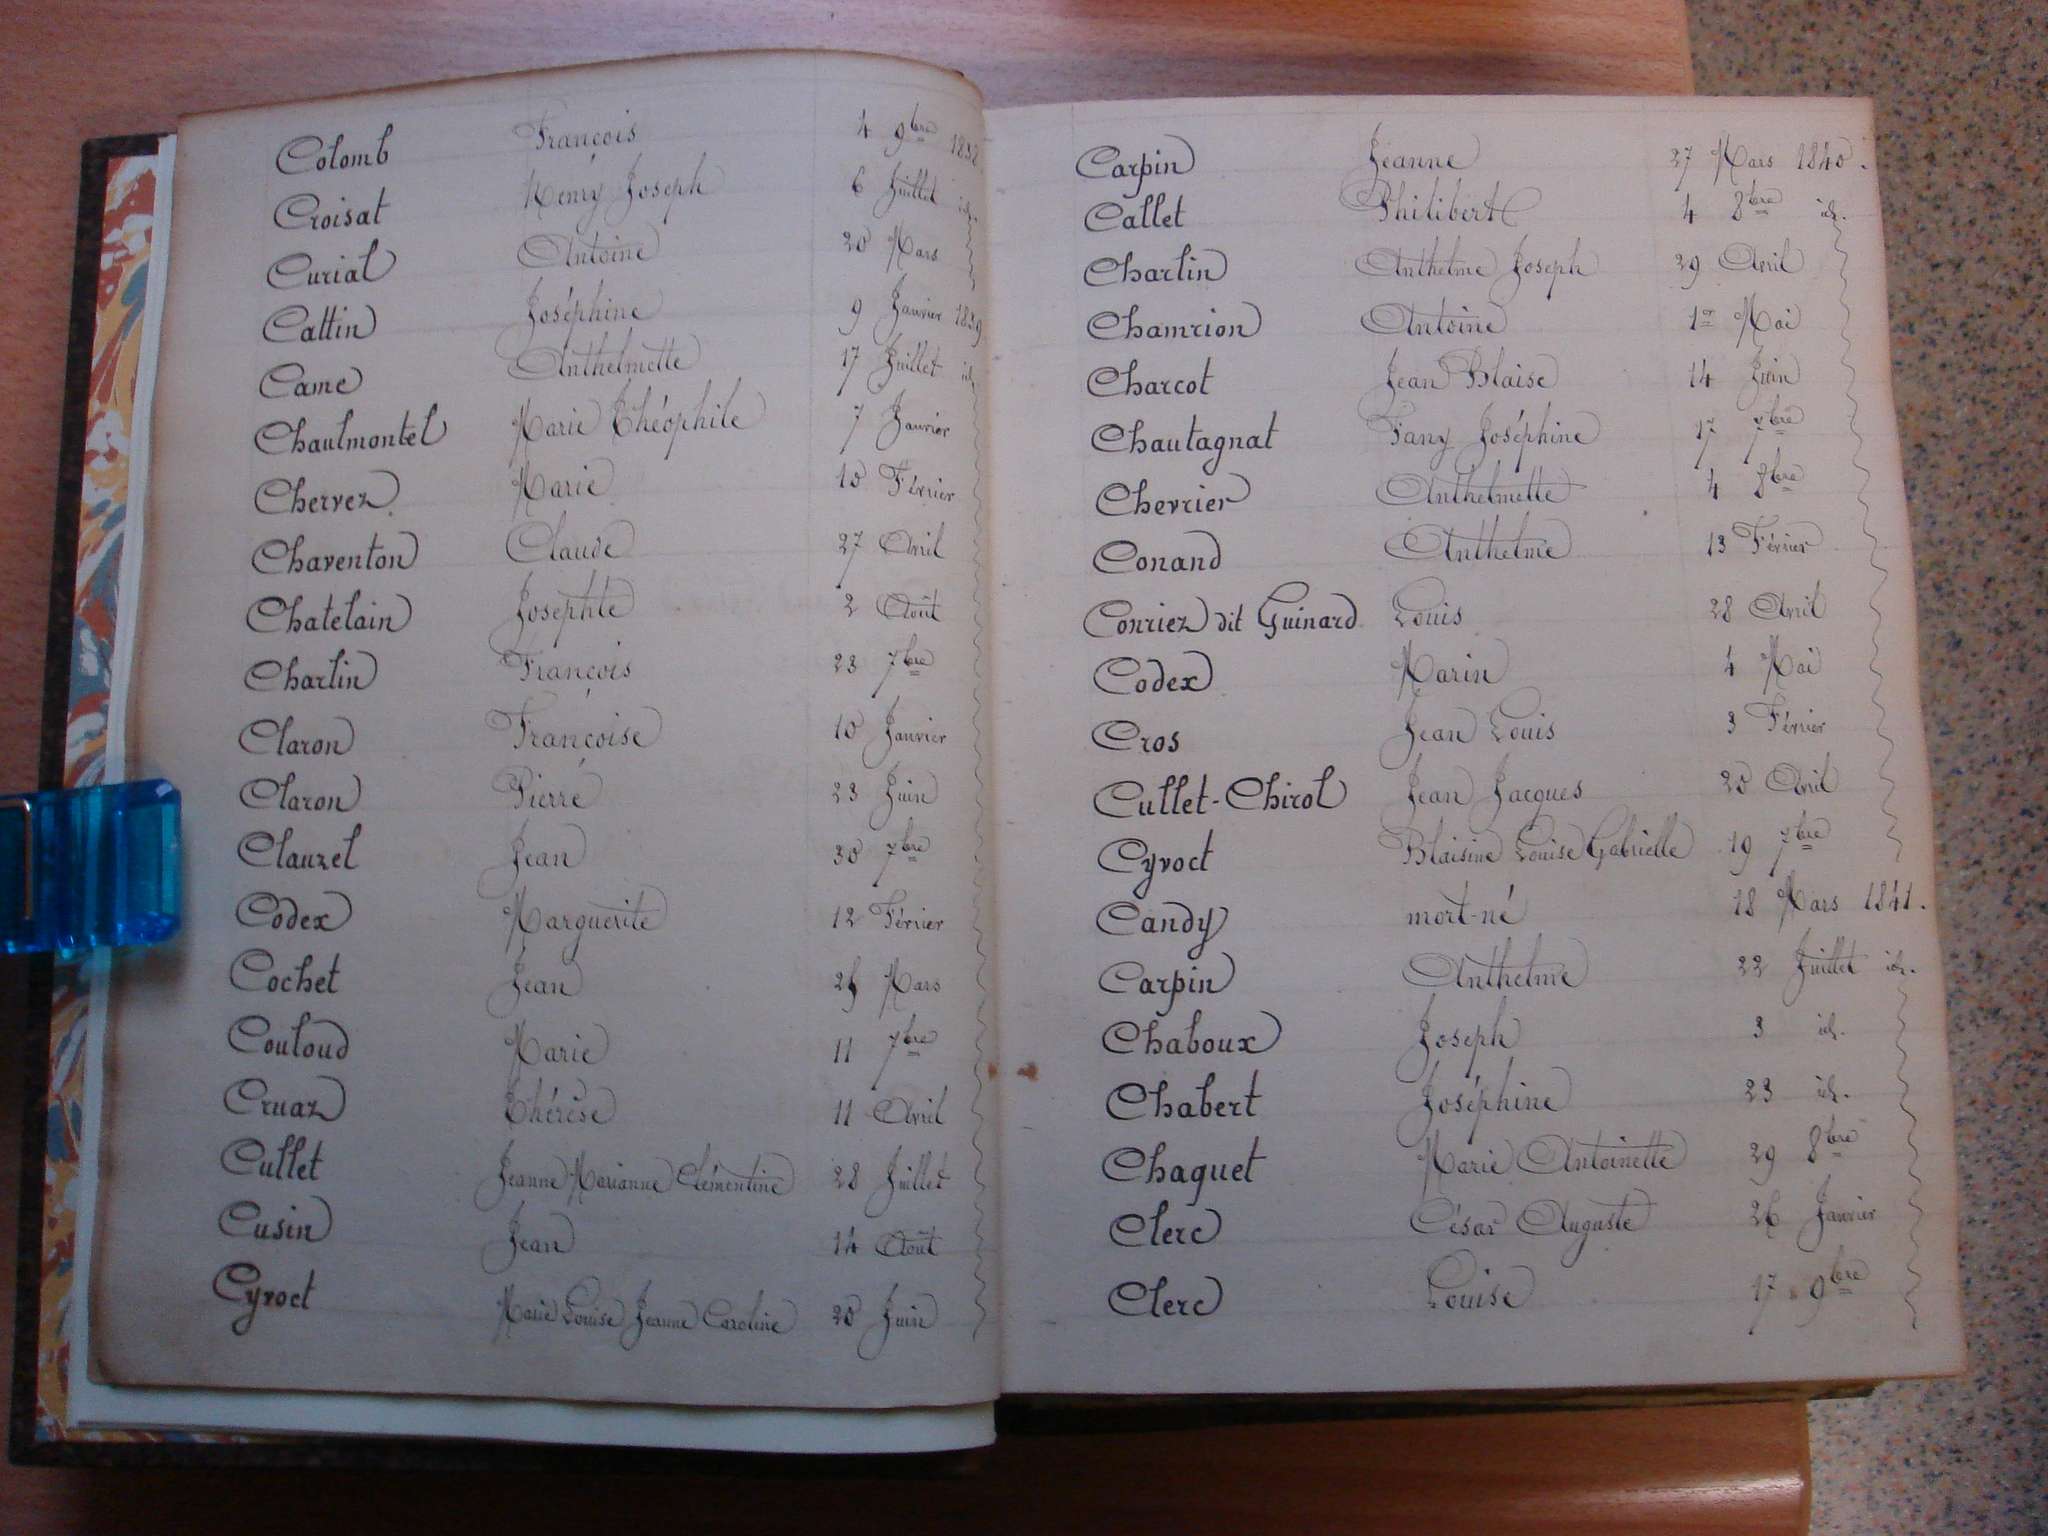 Colomb François 4 9bre 1838.
Croisat Henry Joseph 6 Juillet id.
Curial Antoine 20 Mars
Cattin Joséphine 9 Janvier 1839
Came Anthelmette 17 Juillet id.
Chaulmontel Marie Théophile 7 Janvier
Chervez Marie 10 Février
Chaventon Claude 27 Avril
Chatelain Josephte 2 Août
Charlin François 23 7bre
Claron Françoise 10 Janvier
Claron Pierre 23 Juin
Clauzel Jean 30 7bre
Codex Marguerite 12 Février
Cochet Jean Mars
Couloud Marie 11 7bre
Cruaz Thérèse 11 Avril
Cullet Jeanne Marianne Clémentine 28 Juillet
Cusin Jean 14 Août
Cyvoct Marie Louise Jeanne Caroline 20 Juin
Carpin Jeanne 27 Mars 1840.
Callet Philibert 4 8bre id.
Charlin Anthelme Joseph 29 Avril
Chamrion Antoine 1er Mai
Charcot Jean Blaise 14 Juin
Chautagnat Fany Joséphine 17 7bre
Chevrier Anthelmette 4 8bre
Conand Anthelme 13 Février
Conriez dit Guinard Louis 28 Avril
Codex Marin 4 Mai
Cros Jean Louis 3 Février
Cullet-Chirol Jean Jacques 20 Avril
Cyvoct Blaisine Louise Gabrielle 19 7bre
Candy mort-né 18 Mars 1841.
Carpin Anthelme 22 Juillet id.
Chaboux Joseph 3 id.
Chabert Joséphine 23 id.
Chaquet Marie Antoinette 29 8bre
Clerc César Auguste 26 Janvier
Clerc Louise 17 9bre